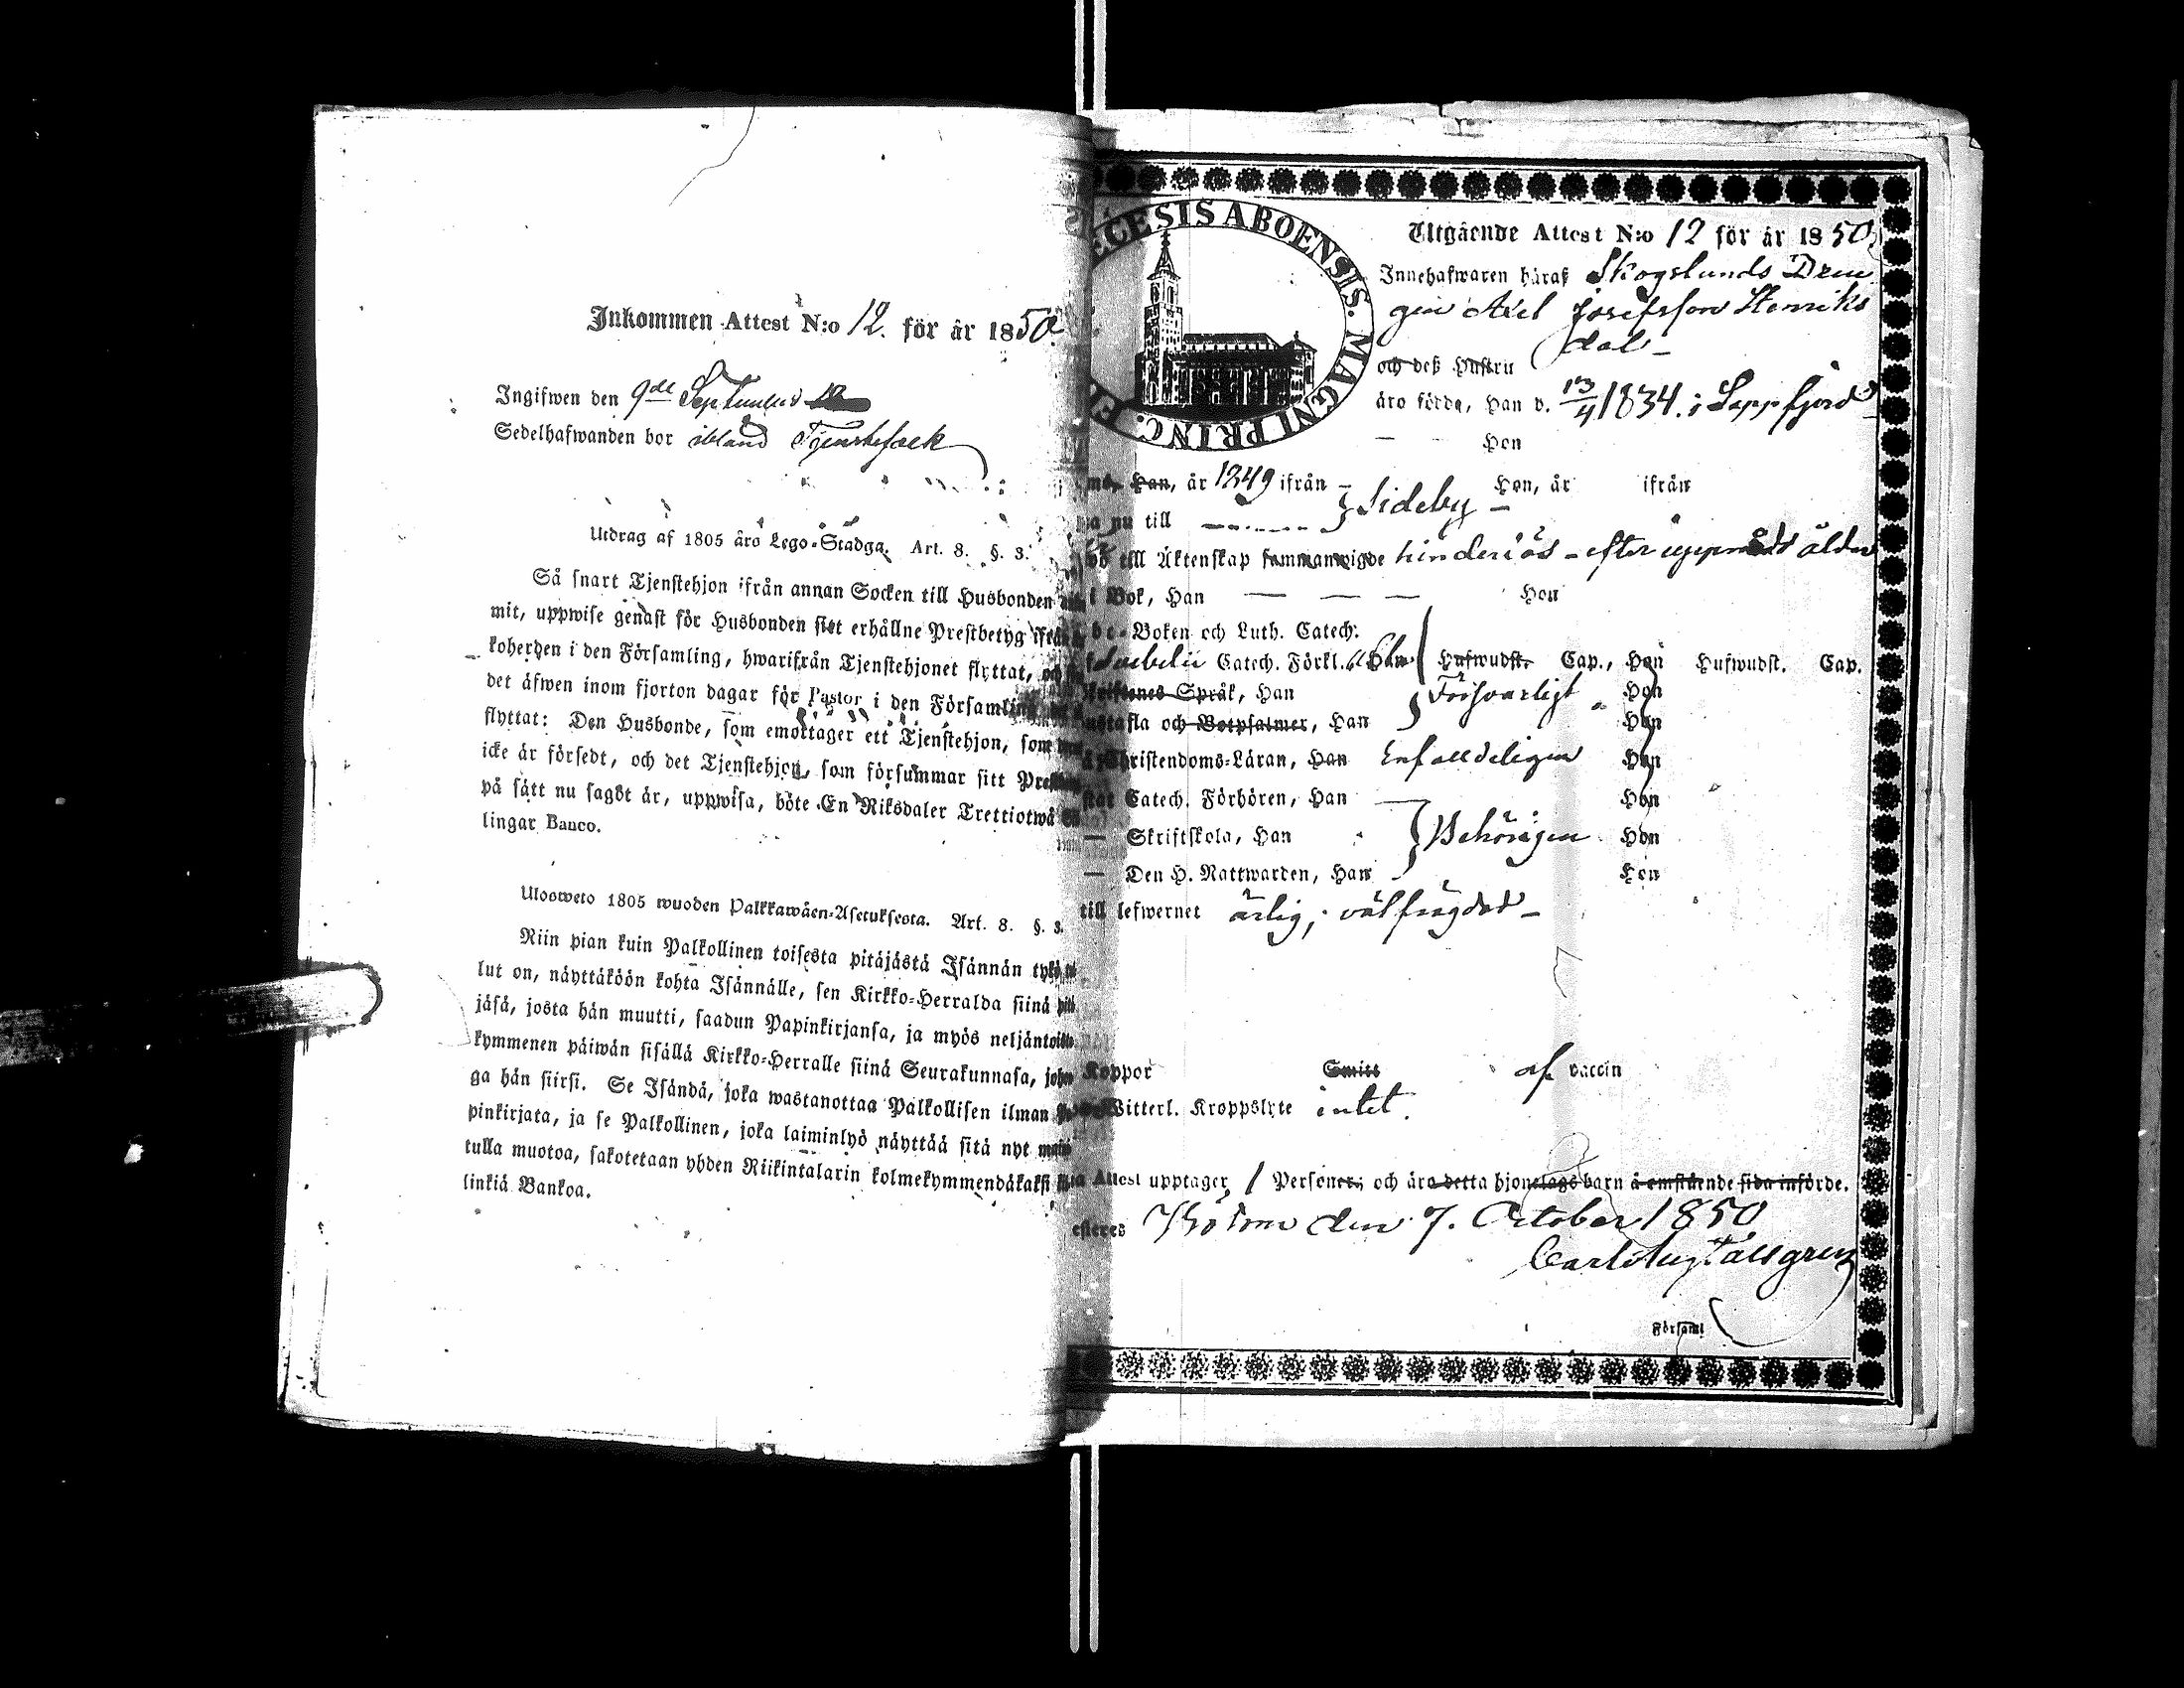 Inkommen Attest N:o 12. för år 1850.
Ingifwen den 9de September
Sedelhafwanden bor ibland Tjenstefolk
Utdrag af 1805 års Lego-Stadga. Art. 8. §. 3.
Så snart Tjenstehjon ifrån annan Socken till Husbonden
mit, uppwise genast för Husbonden sitt erhållne Prestbetyg ifrån
koherden i den Församling, hwarifrån Tjenstehjonet flyttat, och
det äfwen inom fjorton dagar för Pastor i den Församling
flyttat: Den Husbonde, som emottager ett Tjenstehjon, som
icke är försedt, och det Tjenstehjon, som försummar sitt
på sätt nu sagdt är, uppwisa, böte En Riksdaler Trettiotwå
lingar Banco.
Ulosweto 1805 wuoden Palkkawäen-Asetuksesta. Art. 8. §. 3.
Niin pian kuin Palkollinen toisesta pitäjästä Isännän tykö
lut on, näyttäköön kohta Isännälle, sen Kirkko-Herralda siinä
jäsä, josta hän muutti, saadun Papinkirjansa, ja myös neljäntoista
kymmenen päiwän sisällä Kirkko-Herralle siinä Seurakunnasa, johon
ga hän siirsi. Se Isändä, joka wastanottaa Palkollisen ilman
pinkirjata, ja se Palkollinen, joka laiminlyö näyttää sitä nyt
tulla muotoa, sakotetaan yhden Riikintalarin kolmekymmendäkaksi
linkiä Bankoa.
ECESIS ABOENSIS. MAGNI PRINC.
Utgående Attest N:o 12 för år 1850
Innehafwaren häraf Skogslunds Dren
gen Axel Josefsson Henriks
dal
och deß Hustru
äro födde, Han d. 13/4 1834. i Lappfjerd
Hon
Han, år 1849 ifrån Hon, år ifrån
nu till Sideby
till Äktenskap sammanwigde hinderlös - efter uppnådd ålder
i Bok, Han Hon
Boken och Luth. Catech:
Svebelii Catech. Förkl. Han Hufwudst. Cap., Hon Hufwudst. Cap.
Skriftenes Språk, Han Försvarligt Hon
Hustafla och Botpsalmer, Han Hon
Christendoms-Läran, Han Enfalldeligen Hon
Catech. Förhören, Han Hon
Skriftskola, Han Behörigen Hon
Den H. Nattwarden, Han Hon
till lefwernet ärlig, välfrägdad
Koppor Smitt af vaccin
Witterl. Kroppslyte intet.
Attest upptager 1 Personer; och äro detta hjonelags barn å omstående sida införde.
den 7. October 1850
Carl Aug. Tallgren
Församl